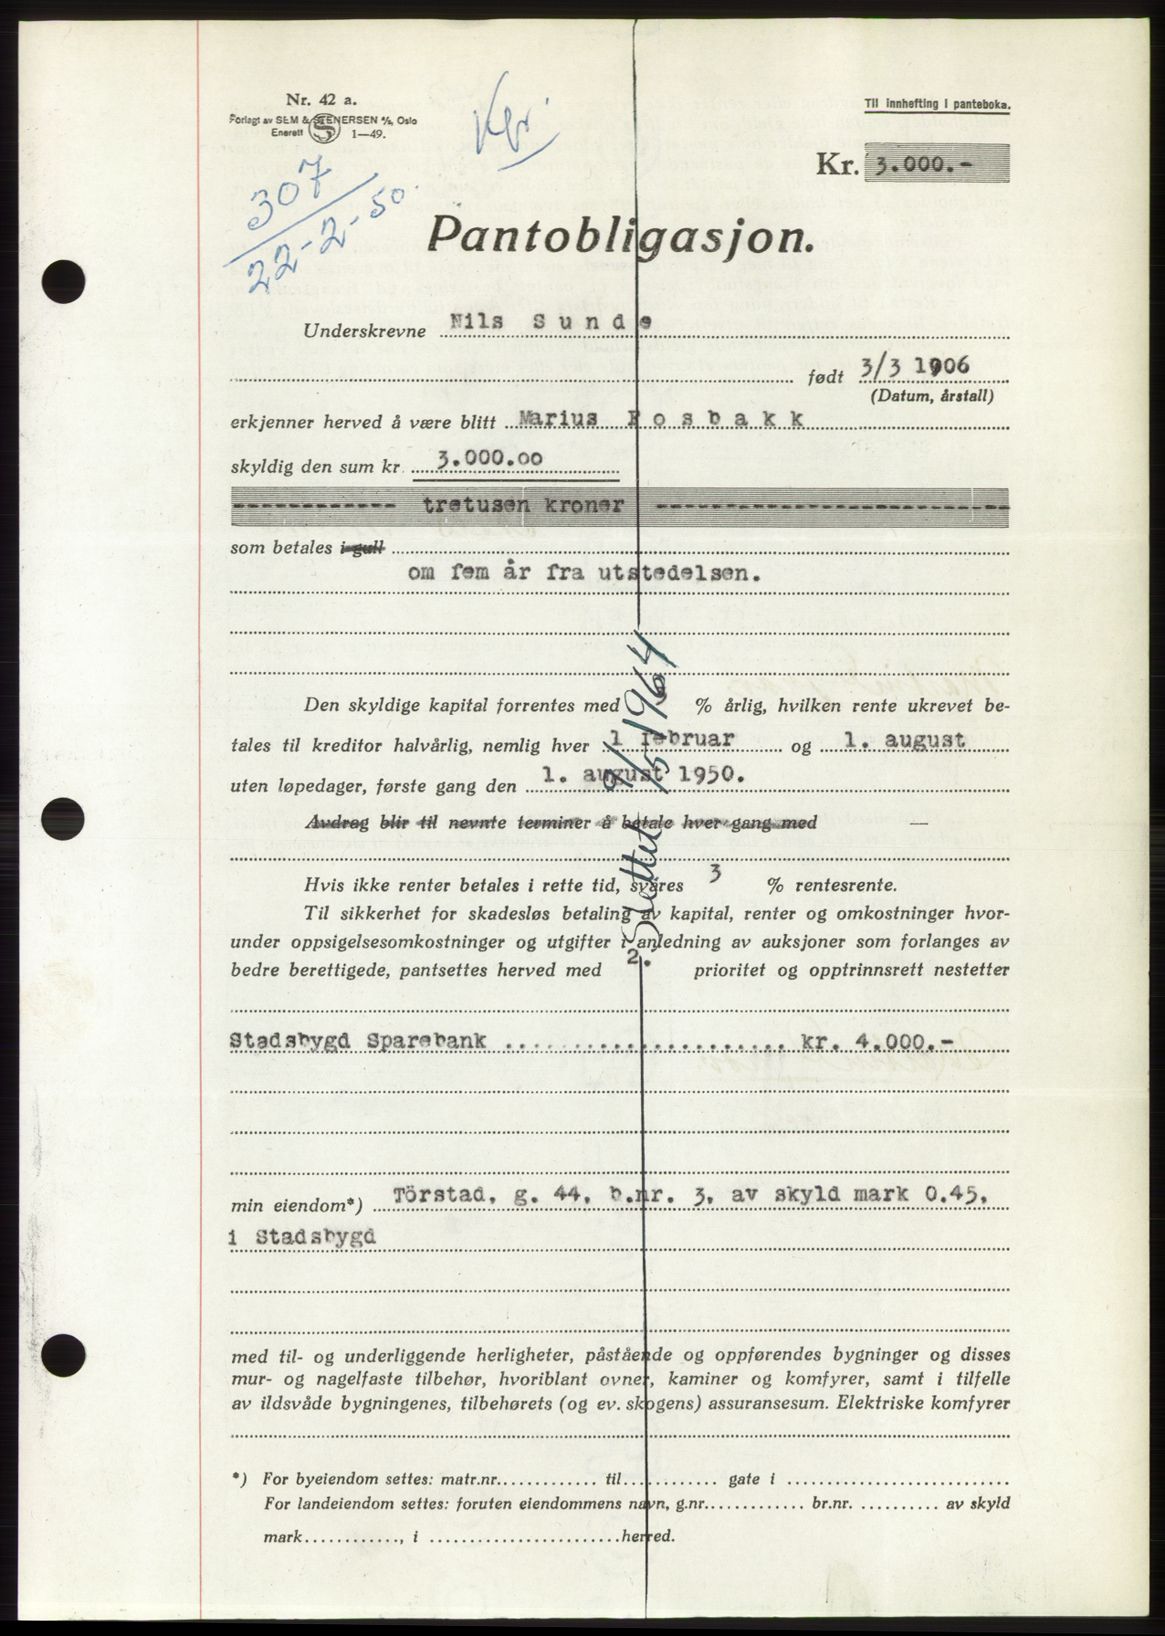 Nr. 42 a.
Forlagt av SEM & STENERSEN A/S, Oslo
Enerett S 1—49.
Til innhefting i panteboka.
Kr. 3.000.-
307
22-2-50.
Pantobligasjon.
Underskrevne Nils Sunde
født 3/3 1906
(Datum, årstall)
erkjenner herved å være blitt Marius Fosbakk
skyldig den sum kr. 3.000.00
----------- tretusen kroner -----------------------
som betales i gull
om fem år fra utstedelsen.
Den skyldige kapital forrentes med % årlig, hvilken rente ukrevet be-
tales til kreditor halvårlig, nemlig hver 1 februar og 1. august
uten løpedager, første gang den 1. august 1950.
Avdrag blir til nevnte terminer å betale hver gang med —
Slettet 9/5 1964
Hvis ikke renter betales i rette tid, svares 3 % rentesrente.
Til sikkerhet for skadesløs betaling av kapital, renter og omkostninger hvor-
under oppsigelsesomkostninger og utgifter i anledning av auksjoner som forlanges av
bedre berettigede, pantsettes herved med 2. prioritet og opptrinnsrett nestetter
Stadsbygd Sparebank ..................... kr. 4.000.-
min eiendom*) Törstad, g. 44, b.nr. 3, av skyld mark 0.45,
i Stadsbygd
med til- og underliggende herligheter, påstående og oppførendes bygninger og disses
mur- og nagelfaste tilbehør, hvoriblant ovner, kaminer og komfyrer, samt i tilfelle
av ildsvåde bygningenes, tilbehørets (og ev. skogens) assuransesum. Elektriske komfyrer
*) For byeiendom settes: matr.nr. ............ til ............ gate i ............................
For landeiendom settes: foruten eiendommens navn, g.nr. ............ br.nr. .......... av skyld
mark ............, i ........................ herred.